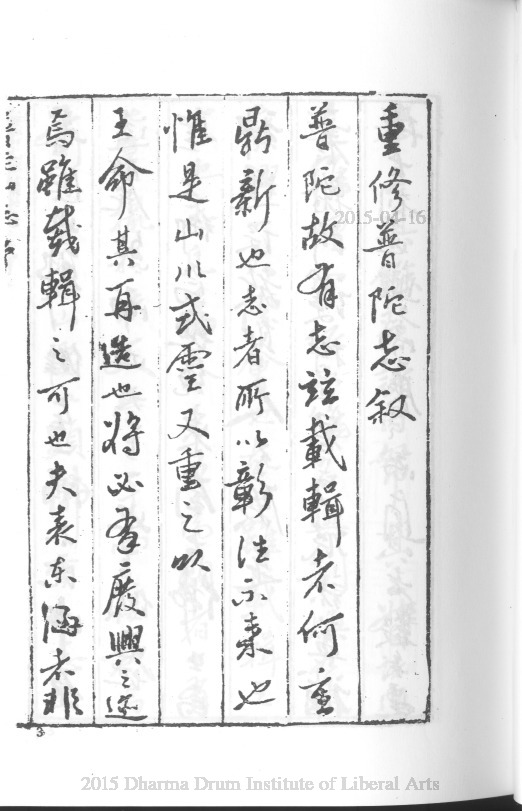 重修普陀志叙
普陀故有志茲載輯者何重
鼎新也志者所以彰往示来也
惟是山川式靈又重之以
王命其再造也将必有廢興之迹
焉雖載輯之可也夫表东海者非
3
2015-04-16
2015 Dharma Drum Institute of Liberal Arts